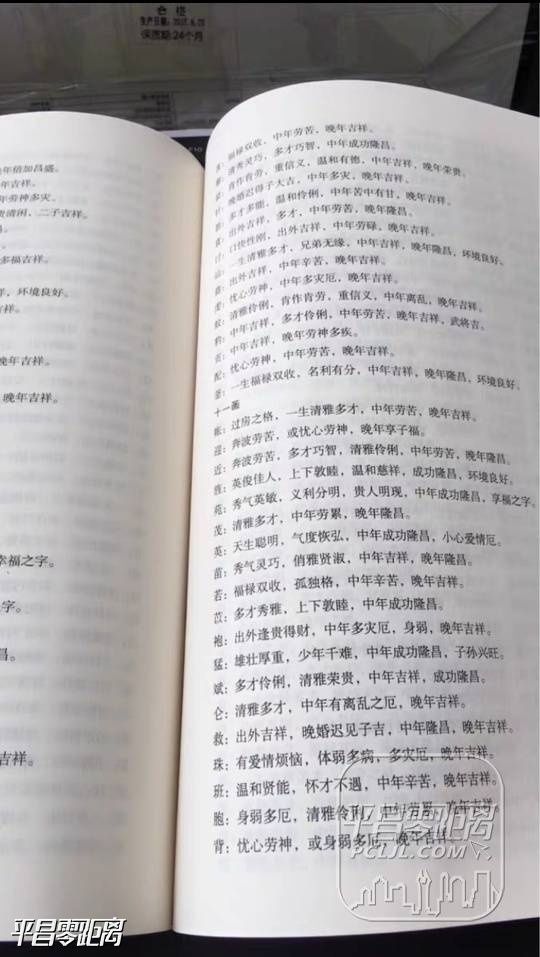 合格
生产日期:
保质期:24个月
年倍加昌盛。
年吉祥。
年劳神多灾。
贵清闲、二子吉祥。
多福吉祥。
祥,环境良好。
年吉祥。
晚年吉祥。
幸福之字。
字。
昌。
吉祥。
福禄双收,中年劳苦,晚年吉祥。
清秀灵巧,多才巧智,中年成功隆昌。
肯作肯劳,重信义,温和有德,中年吉祥,晚年荣贵。
晚婚迟得子大吉,中年多灾,晚年吉祥。
多才多能,温和伶俐,中年苦中有甘,晚年吉祥。
出外吉祥,多才,中年劳苦,晚年隆昌。
口快性刚,出外吉祥,中年劳碌,晚年吉祥。
一生清雅多才,兄弟无缘,中年吉祥,晚年隆昌,环境良好。
出外吉祥,中年辛苦,晚年吉祥。
忧心劳神,中年多灾厄,晚年吉祥。
清雅伶俐,肯作肯劳,重信义,中年离乱,晚年吉祥。
中年吉祥,多才伶俐,中年劳苦,晚年吉祥,武将吉。
中年吉祥,晚年劳神多疾。
配:忧心劳神,中年劳苦,晚年吉祥。
一生福禄双收,名利有分,中年吉祥,晚年隆昌,环境良好。
十一画
过房之格,一生清雅多才,中年劳苦,晚年吉祥。
迎:奔波劳苦,或忧心劳神,晚年享子福。
近:奔波劳苦,多才巧智,清雅伶俐,中年吉祥,晚年隆昌。
英俊佳人,上下敦睦,温和慈祥,成功隆昌,环境良好。
苑:秀气英敏,义利分明,贵人明现,中年成功隆昌,享福之字。
茂:清雅多才,中年劳累,晚年隆昌。
英:天生聪明,气度恢弘,中年成功隆昌,小心爱情厄。
苗:秀气灵巧,俏雅贤淑,中年吉祥,晚年隆昌。
若:福禄双收,孤独格,中年辛苦,晚年吉祥。
苡:多才秀雅,上下敦睦,中年成功隆昌。
袍:出外逢贵得财,中年多灾厄,身弱,晚年吉祥。
猛:雄壮厚重,少年千难,中年成功隆昌,子孙兴旺。
斌:多才伶俐,清雅荣贵,中年吉祥,成功隆昌。
仑:清雅多才,中年有离乱之厄,晚年吉祥。
救:出外吉祥,晚婚迟见子吉,中年隆昌,晚年吉祥。
珠:有爱情烦恼,体弱多病,多灾厄,晚年吉祥。
班:温和贤能,怀才不遇,中年辛苦,晚年吉祥。
胞:身弱多厄,清雅伶俐,中年劳累,晚年吉祥。
背:忧心劳神,或身弱多厄,晚年吉祥
平昌零距离
PCLJL.COM
平昌零距离